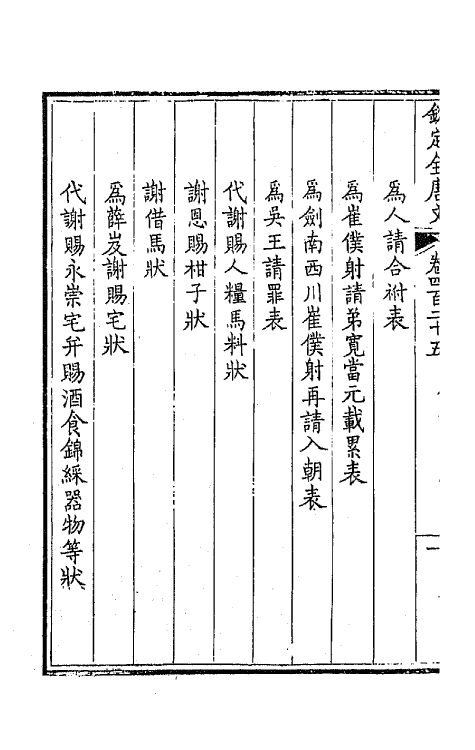 欽定全唐文 卷四百二十五 一
為人請合祔表
為崔僕射請弟寬當元載累表
為劍南西川崔僕射再請入朝表
為吳王請罪表
代謝賜人糧馬料狀
謝恩賜柑子狀
謝借馬狀
為薛岌謝賜宅狀
代謝賜永崇宅并賜酒食錦綵器物等狀